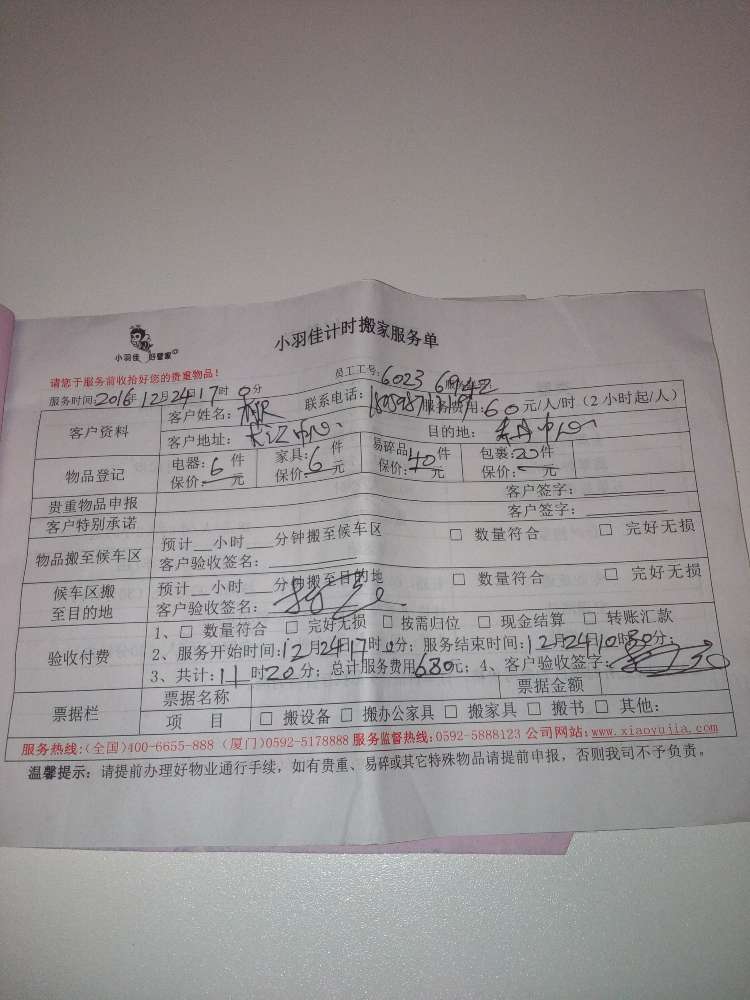 小羽佳 好管家
小羽佳计时搬家服务单
请您于服务前收拾好您的贵重物品！
员工工号：6023
服务时间：2016年12月24日17时0分
客户资料 客户姓名： 联系电话： 服务费用：60元/人/时（2小时起/人）
客户地址： 目的地：
物品登记 电器：6件 家具：6件 易碎品：40件 包裹：20件
保价：—元 保价：—元 保价：—元 保价：—元
贵重物品申报 客户签字：
客户特别承诺 客户签字：
物品搬至候车区 预计__小时___分钟搬至候车区 □ 数量符合 □ 完好无损
客户验收签名：
候车区搬至目的地 预计__小时___分钟搬至目的地 □ 数量符合 □ 完好无损
客户验收签名：
验收付费 1、□ 数量符合 □ 完好无损 □ 按需归位 □ 现金结算 □ 转账汇款
2、服务开始时间：12月24日17时0分；服务结束时间：12月24日 时 分；
3、共计：11时20分；总计服务费用680元；4、客户验收签字：
票据栏 票据名称 票据金额
项 目 □ 搬设备 □ 搬办公家具 □ 搬家具 □ 搬书 □ 其他：
服务热线：(全国)400-6655-888 (厦门)0592-5178888 服务监督热线：0592-5888123 公司网站：www.xiaoyujia.com
温馨提示：请提前办理好物业通行手续，如有贵重、易碎或其它特殊物品请提前申报，否则我司不予负责。